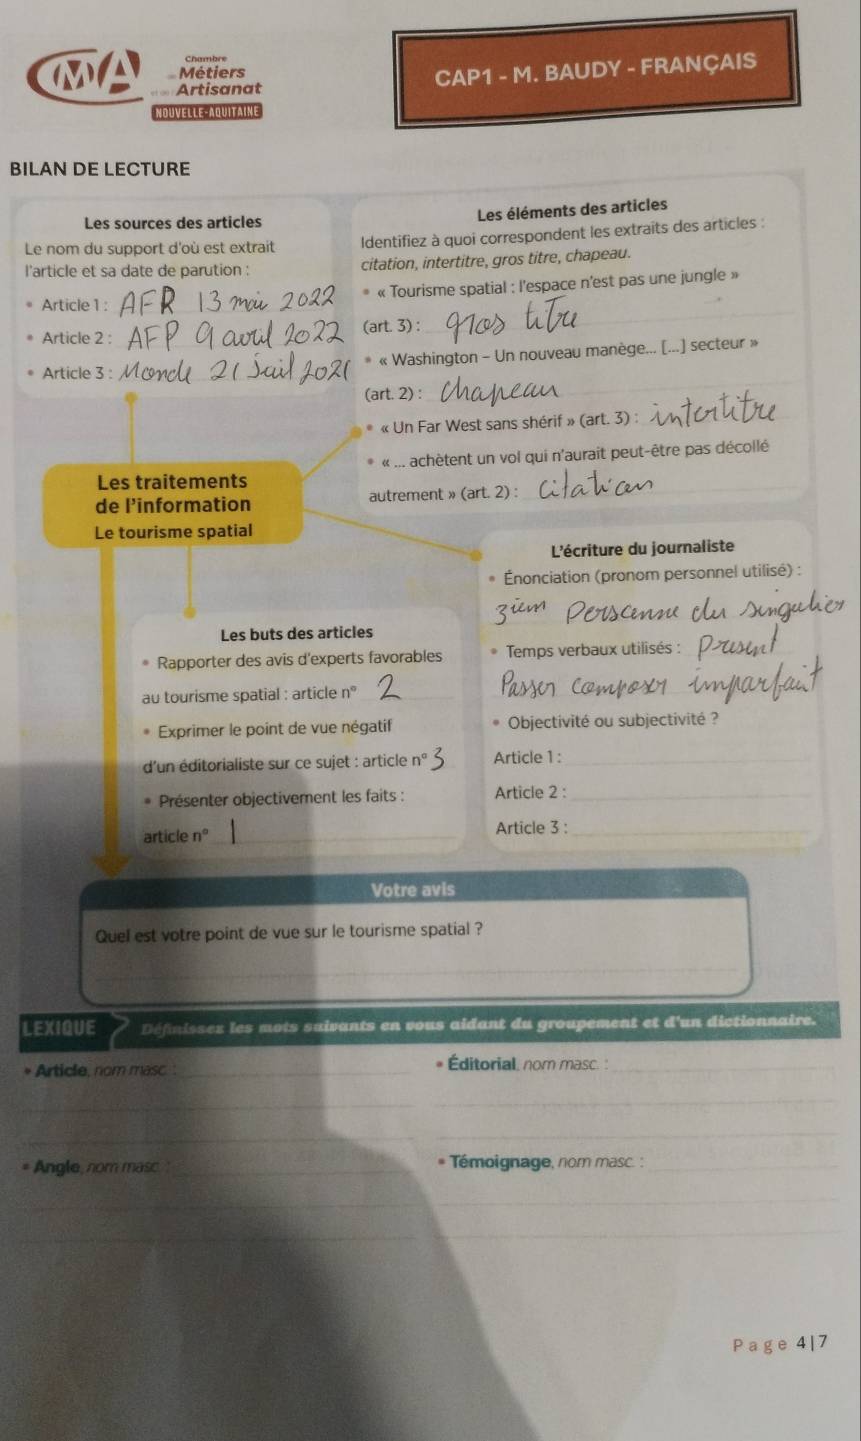 Chambre
Métiers
et de l'Artisanat
NOUVELLE-AQUITAINE
CMA
CAP1 - M. BAUDY - FRANÇAIS
BILAN DE LECTURE
Les sources des articles
Le nom du support d'où est extrait
l'article et sa date de parution :
• Article 1 : AFR 13 mai 2022
• Article 2 : AFP 9 avril 2022
• Article 3 : Monde 21 Juil 2021
Les éléments des articles
Identifiez à quoi correspondent les extraits des articles :
citation, intertitre, gros titre, chapeau.
• « Tourisme spatial : l'espace n'est pas une jungle »
(art. 3) : gros titre
• « Washington – Un nouveau manège... [...] secteur »
(art. 2) : Chapeau
• « Un Far West sans shérif » (art. 3) : intertitre
• « ... achètent un vol qui n'aurait peut-être pas décollé
autrement » (art. 2) : Citation
Les traitements
de l'information
Le tourisme spatial
L'écriture du journaliste
• Énonciation (pronom personnel utilisé) :
3iem Personne du singulier
• Temps verbaux utilisés : Present
Passer composer imparfait
• Objectivité ou subjectivité ?
Article 1 :
Article 2 :
Article 3 :
Les buts des articles
• Rapporter des avis d'experts favorables
au tourisme spatial : article n° 2
• Exprimer le point de vue négatif
d'un éditorialiste sur ce sujet : article n° 3
• Présenter objectivement les faits :
article n° 1
Votre avis
Quel est votre point de vue sur le tourisme spatial ?
LEXIQUE Définissez les mots suivants en vous aidant du groupement et d'un dictionnaire.
• Article, nom masc. :
• Éditorial, nom masc. :
• Angle, nom masc. :
• Témoignage, nom masc. :
Page 4|7